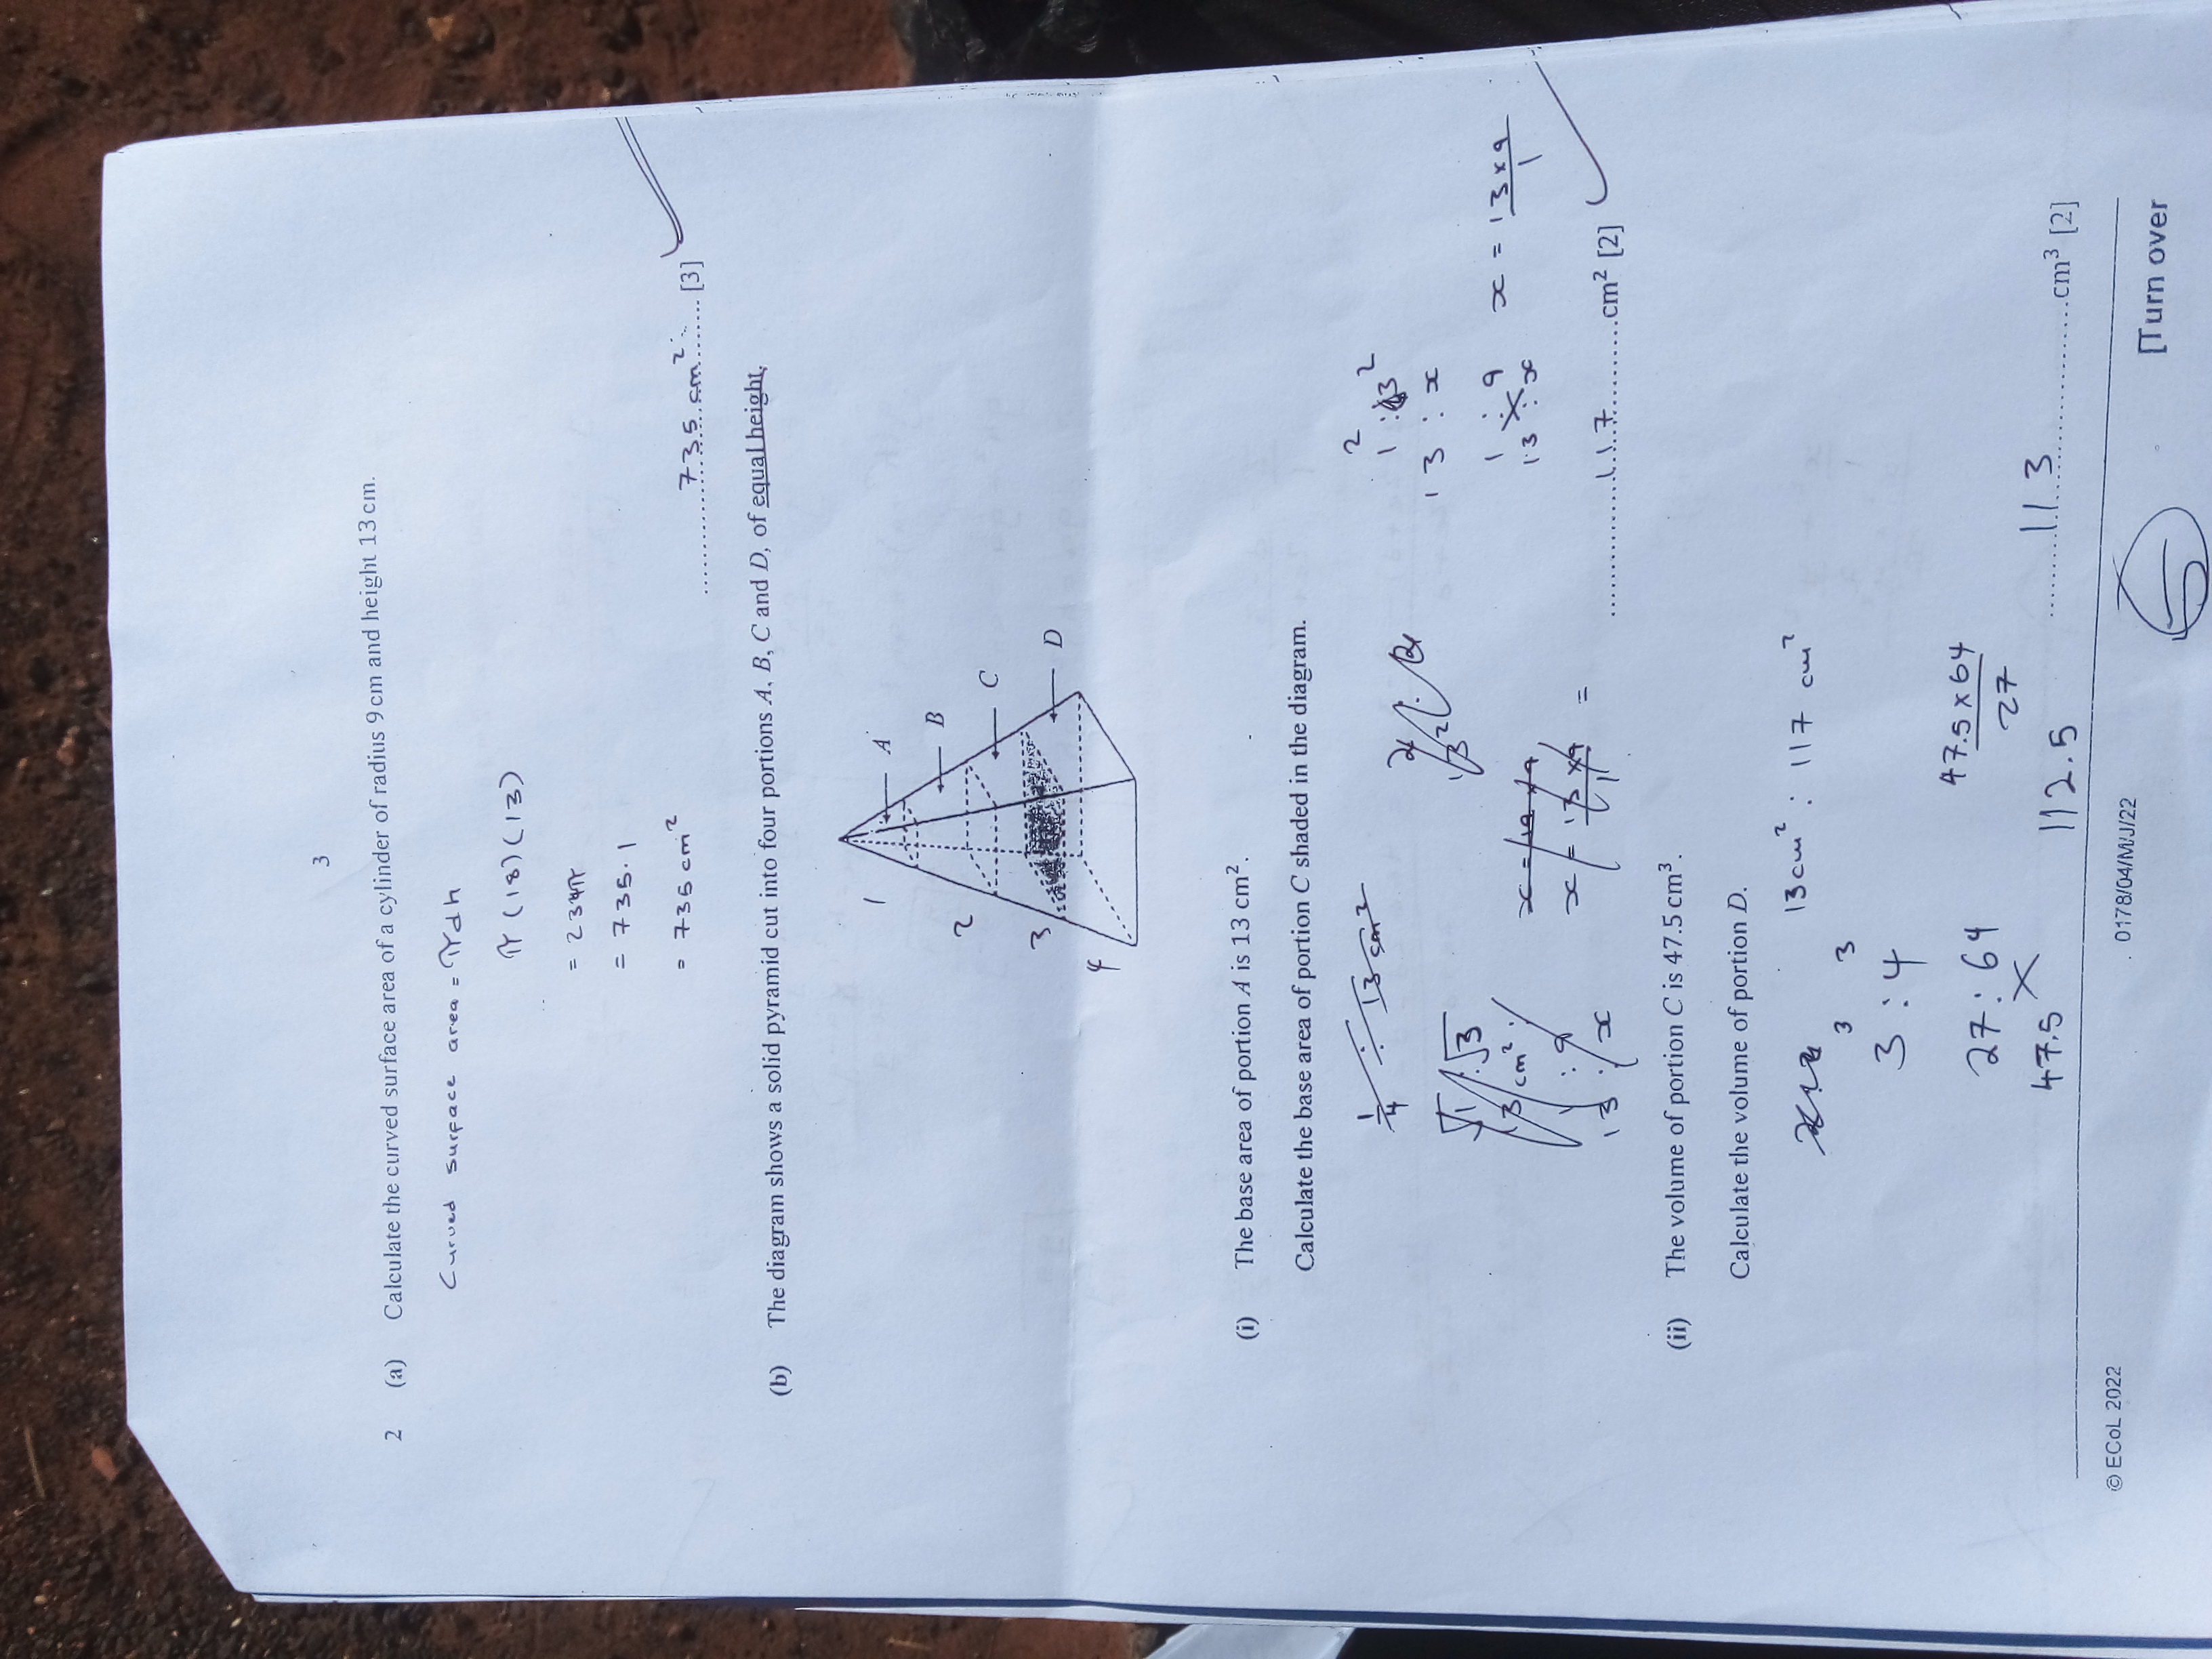 3
2 (a) Calculate the curved surface area of a cylinder of radius 9 cm and height 13 cm.
Curved surface area = πdh
π (18)(13)
= 234π
= 735.1
= 735 cm²
735 cm² [3]
(b) The diagram shows a solid pyramid cut into four portions A, B, C and D, of equal height.
1 A
B
2
C
3
D
4
(i) The base area of portion A is 13 cm².
Calculate the base area of portion C shaded in the diagram.
1/4 : 13 cm²
1² : 3²
13 : x
√1 : √3
13 cm² :
1 : 9
13 : x
x = 13 x 9 / 1 =
1 : 9
13 : x
x = 13 x 9 / 1
117 cm² [2]
(ii) The volume of portion C is 47.5 cm³.
Calculate the volume of portion D.
13 cm² : 117 cm²
3³ : 4³
27 : 64
47.5
47.5 x 64 / 27
112.5
113 cm³ [2]
© ECoL 2022
0178/04/M/J/22
[Turn over
5